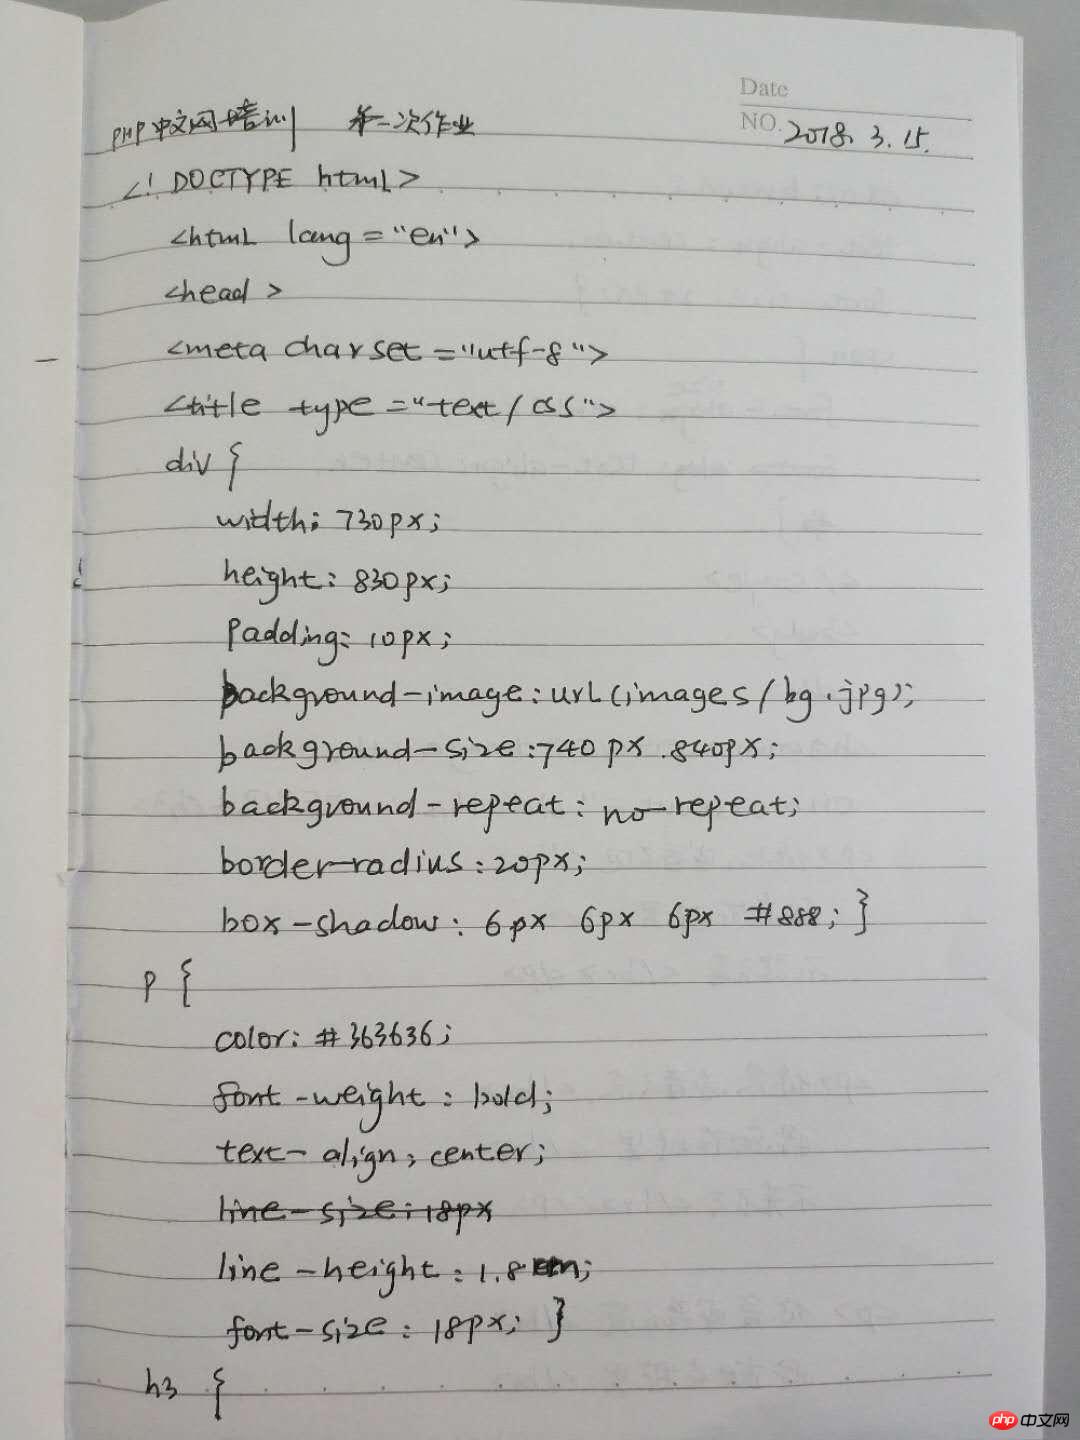 Date
PHP中文网培训 第一次作业
NO. 2018. 3. 15.
<! DOCTYPE html>
<html lang = "en">
<head >
<meta charset = "utf-8">
<title type = "text/css">
div {
width: 730px;
height: 830px;
Padding: 10px;
background-image: url(images/bg.jpg);
background-size: 740px .840px;
background-repeat: no-repeat;
border-radius: 20px;
box-shadow: 6px 6px 6px #888; }
p {
color: #363636;
font-weight: bold;
text-align; center;
line-size: 18px
line-height: 1.8em;
font-size: 18px; }
h3 {
php 中文网